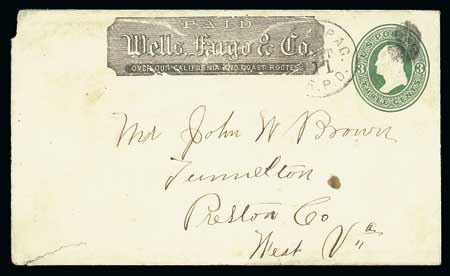 PAID
Wells, Fargo & Co.
OVER OUR CALIFORNIA AND COAST ROUTES.
PAC.
11
R.P.O.
U.S. POSTAGE
3 THREE CENTS 3
Mr John W Brown
Tunnelton
Preston Co
West Va